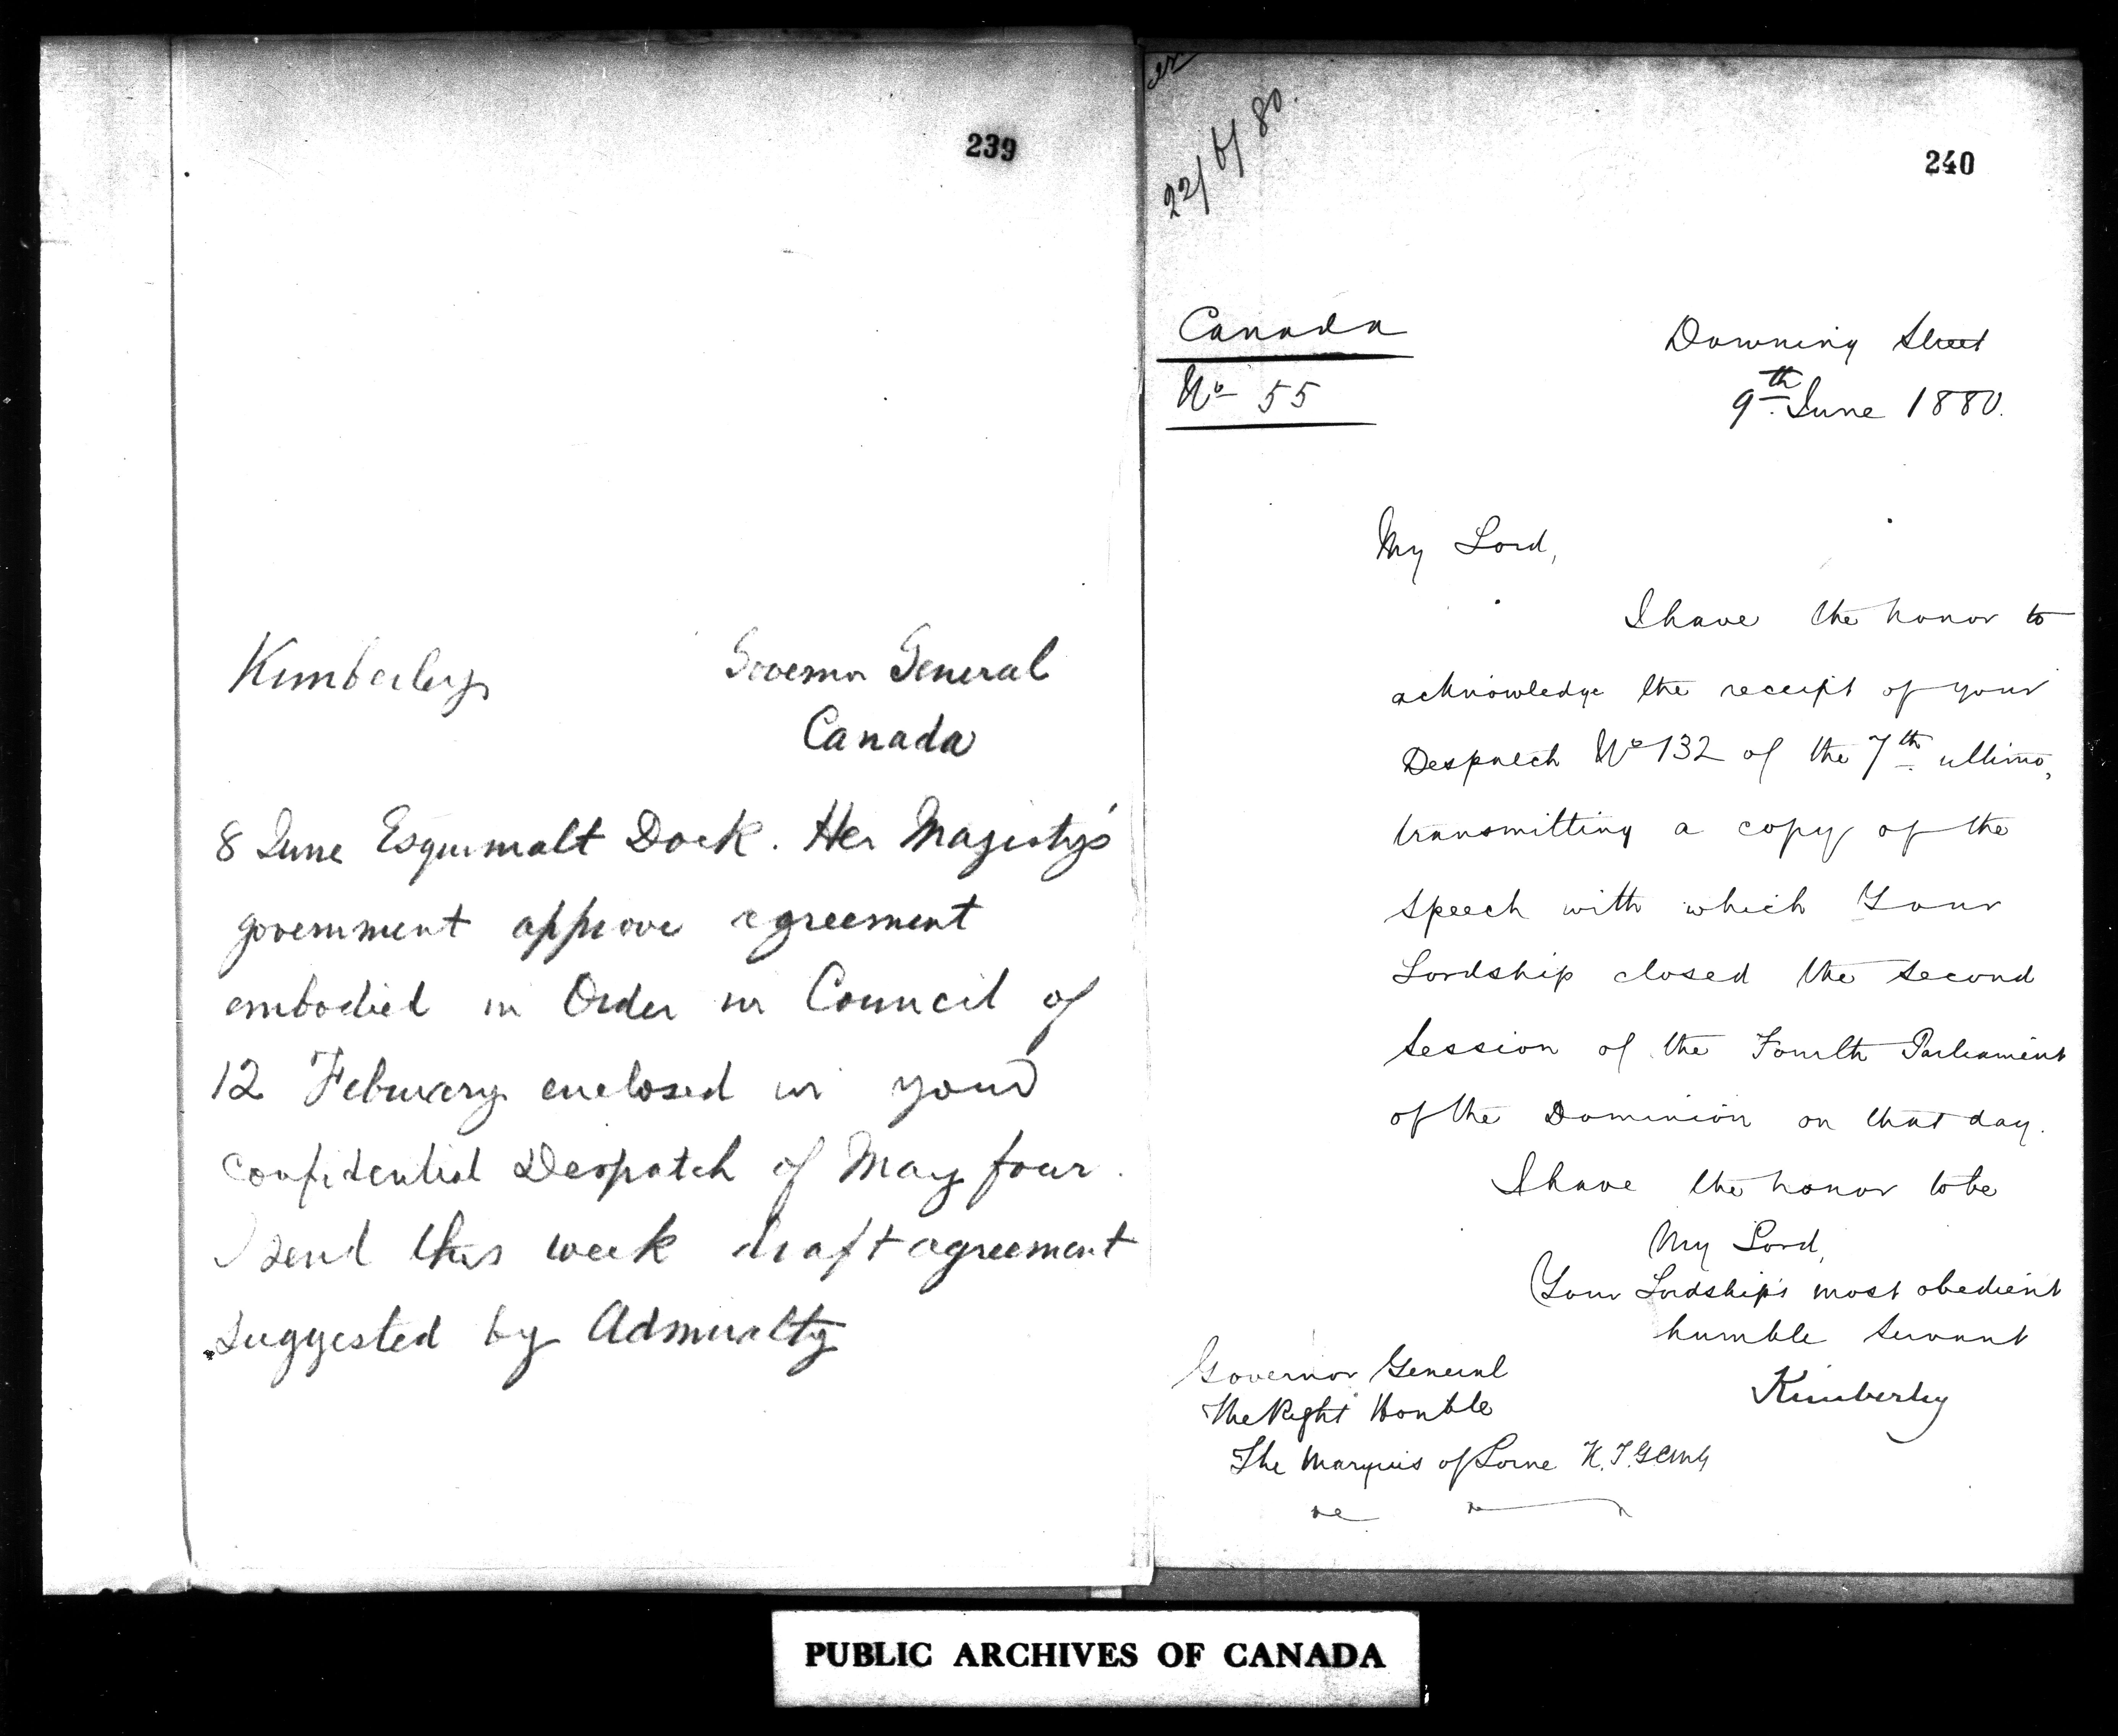 239
Kimberley
Governor General
Canada
8 June Esquimalt Dock. Her Majesty's
government approve agreement
embodied in Order in Council of
12 February enclosed in your
confidential Despatch of May four.
I send this week draft agreement
suggested by Admiralty
22/6/80.
240
Canada
No 55
Downing Street
9th June 1880.
My Lord,
I have the honor to
acknowledge the receipt of your
Despatch No 132 of the 7th ultimo,
transmitting a copy of the
speech with which Your
Lordship closed the second
session of the Fourth Parliament
of the Dominion on that day.
I have the honor to be
My Lord,
Your Lordship's most obedient
humble servant
Kimberley
Governor General
The Right Honble
The Marquis of Lorne K.T. GCMG
PUBLIC ARCHIVES OF CANADA